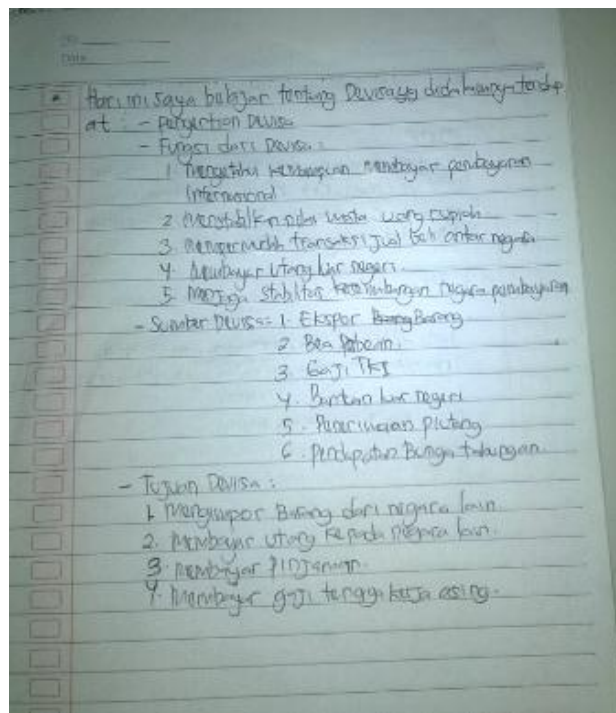 No
Date
Hari ini saya belajar tentang Devisa yg didalamnya terdap
at : - Pengertian Devisa
- Fungsi dari Devisa :
1. Mengetahui kemampuan membayar pembayaran
Internasional
2. Menstabilkan nilai mata uang rupiah
3. Mempermudah transaksi Jual beli antar negara
4. Membayar Utang luar negeri.
5. Menjaga stabilitas keseimbangan negara pembayaran
- Sumber Devisa = 1. Ekspor Barang Barang
2. Bea
3. Gaji TKI
4. Bantuan luar negeri
5. Penerimaan piutang
6. Pendapatan Bunga tabungan.
- Tujuan Devisa :
1. Mengimpor Barang dari negara lain.
2. Membayar utang kepada negara lain.
3. Membayar Pinjaman.
4. Membayar gaji tenaga kerja asing.